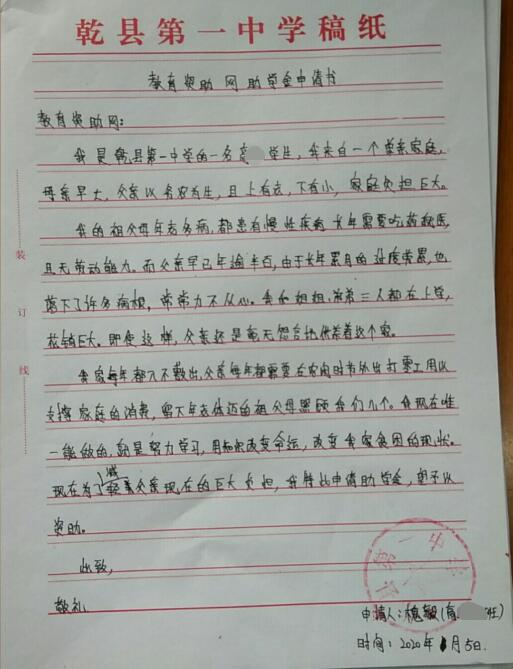 乾县第一中学稿纸
教育资助网助学金申请书
教育资助网:
我是乾县第一中学的一名高 学生,我来自一个单亲家庭,
母亲早亡,父亲以务农为生,且上有老,下有小,家庭负担巨大。
我的祖父母年老多病,都患有慢性疾病长年需要吃药就医,
且无劳动能力。而父亲早已年逾半百,由于长年累月的过度劳累,也
落下了许多病根,常常力不从心。我和姐姐, 三人都在上学,
花销巨大。即使这样,父亲还是毫无怨言地供养着这个家。
我家每年都入不敷出,父亲每年都需要在农闲时节外出打零工用以
支撑家庭的消费,留下年老体迈的祖父母照顾我们几个。我现在唯
一能做的,就是努力学习,用知识改变命运,改变我家贫困的现状。
现在为了减轻父亲现在的巨大负担,我特此申请助学金,望予以
资助。
此致,
敬礼
装
订
线
第一中学
申请人:槐敏(高 班)
时间:2020年 月5日.